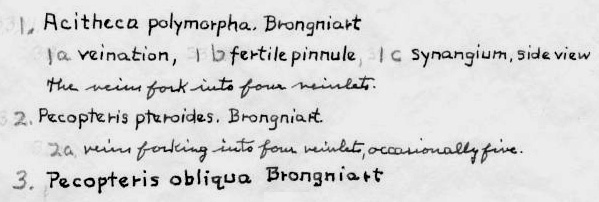 1. Acitheca polymorpha. Brongniart
1a veination, 1b fertile pinnule, 1c Synangium, side view
the veins fork into four veinlets.
2. Pecopteris pteroides. Brongniart.
2a veins forking into four veinlet, occasionally five.
3. Pecopteris obliqua Brongniart